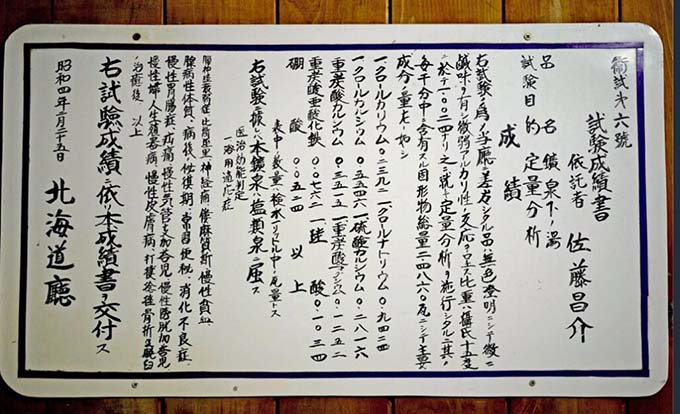 衛試第六號
試験成績書
依託者 佐藤昌介
品名 鑛泉下ノ湯
試験目的 定量分析
成績
右試験ノ爲メ当廳ニ差出シタル品ハ無色澄明ニシテ微ニ
鹹味ヲ有シ微弱アルカリ性ノ反応ヲ呈ス比重攝氏十五度
ニ於テ一.〇〇二四ナリ之ニ就キ定量分析ヲ施行シタルニ其ノ
毎千分中ニ含有スル固形物総量二.四八六〇瓦ニシテ主要
成分ノ量左ノ如シ
一.クロールカリウム 〇.二三九二 一.クロールナトリウム 〇.九四二四
一.クロールカルシウム 〇.三五四六 一.硫酸カルシウム 〇.二八一六
重炭酸カルシウム 〇.三五五二 一.重炭酸マグネシウム 〇.一二五二
重炭酸亜酸化鉄 〇.〇〇七六二 一.硅酸 〇.一〇三四
硼酸 〇.〇五二四 以上
表中ノ数量ハ検水一リットル中ノ瓦量トス
右試験ニ據レバ本鑛泉ハ塩類泉ニ属ス
医治効能判定
一.浴用適応症
神経痛 僂麻質斯 慢性貧血
腺病性体質、病後ノ恢復期、常習便秘、消化不良症、
慢性胃腸症、疝痛、慢性気管支加答児、慢性膀胱加答児
慢性婦人生殖器病、慢性皮膚病、打撲捻挫骨折及脱臼
ノ治癒後 以上
右試験成績ニ依リ本成績書ヲ交付ス
昭和四年二月二十五日 北海道廳